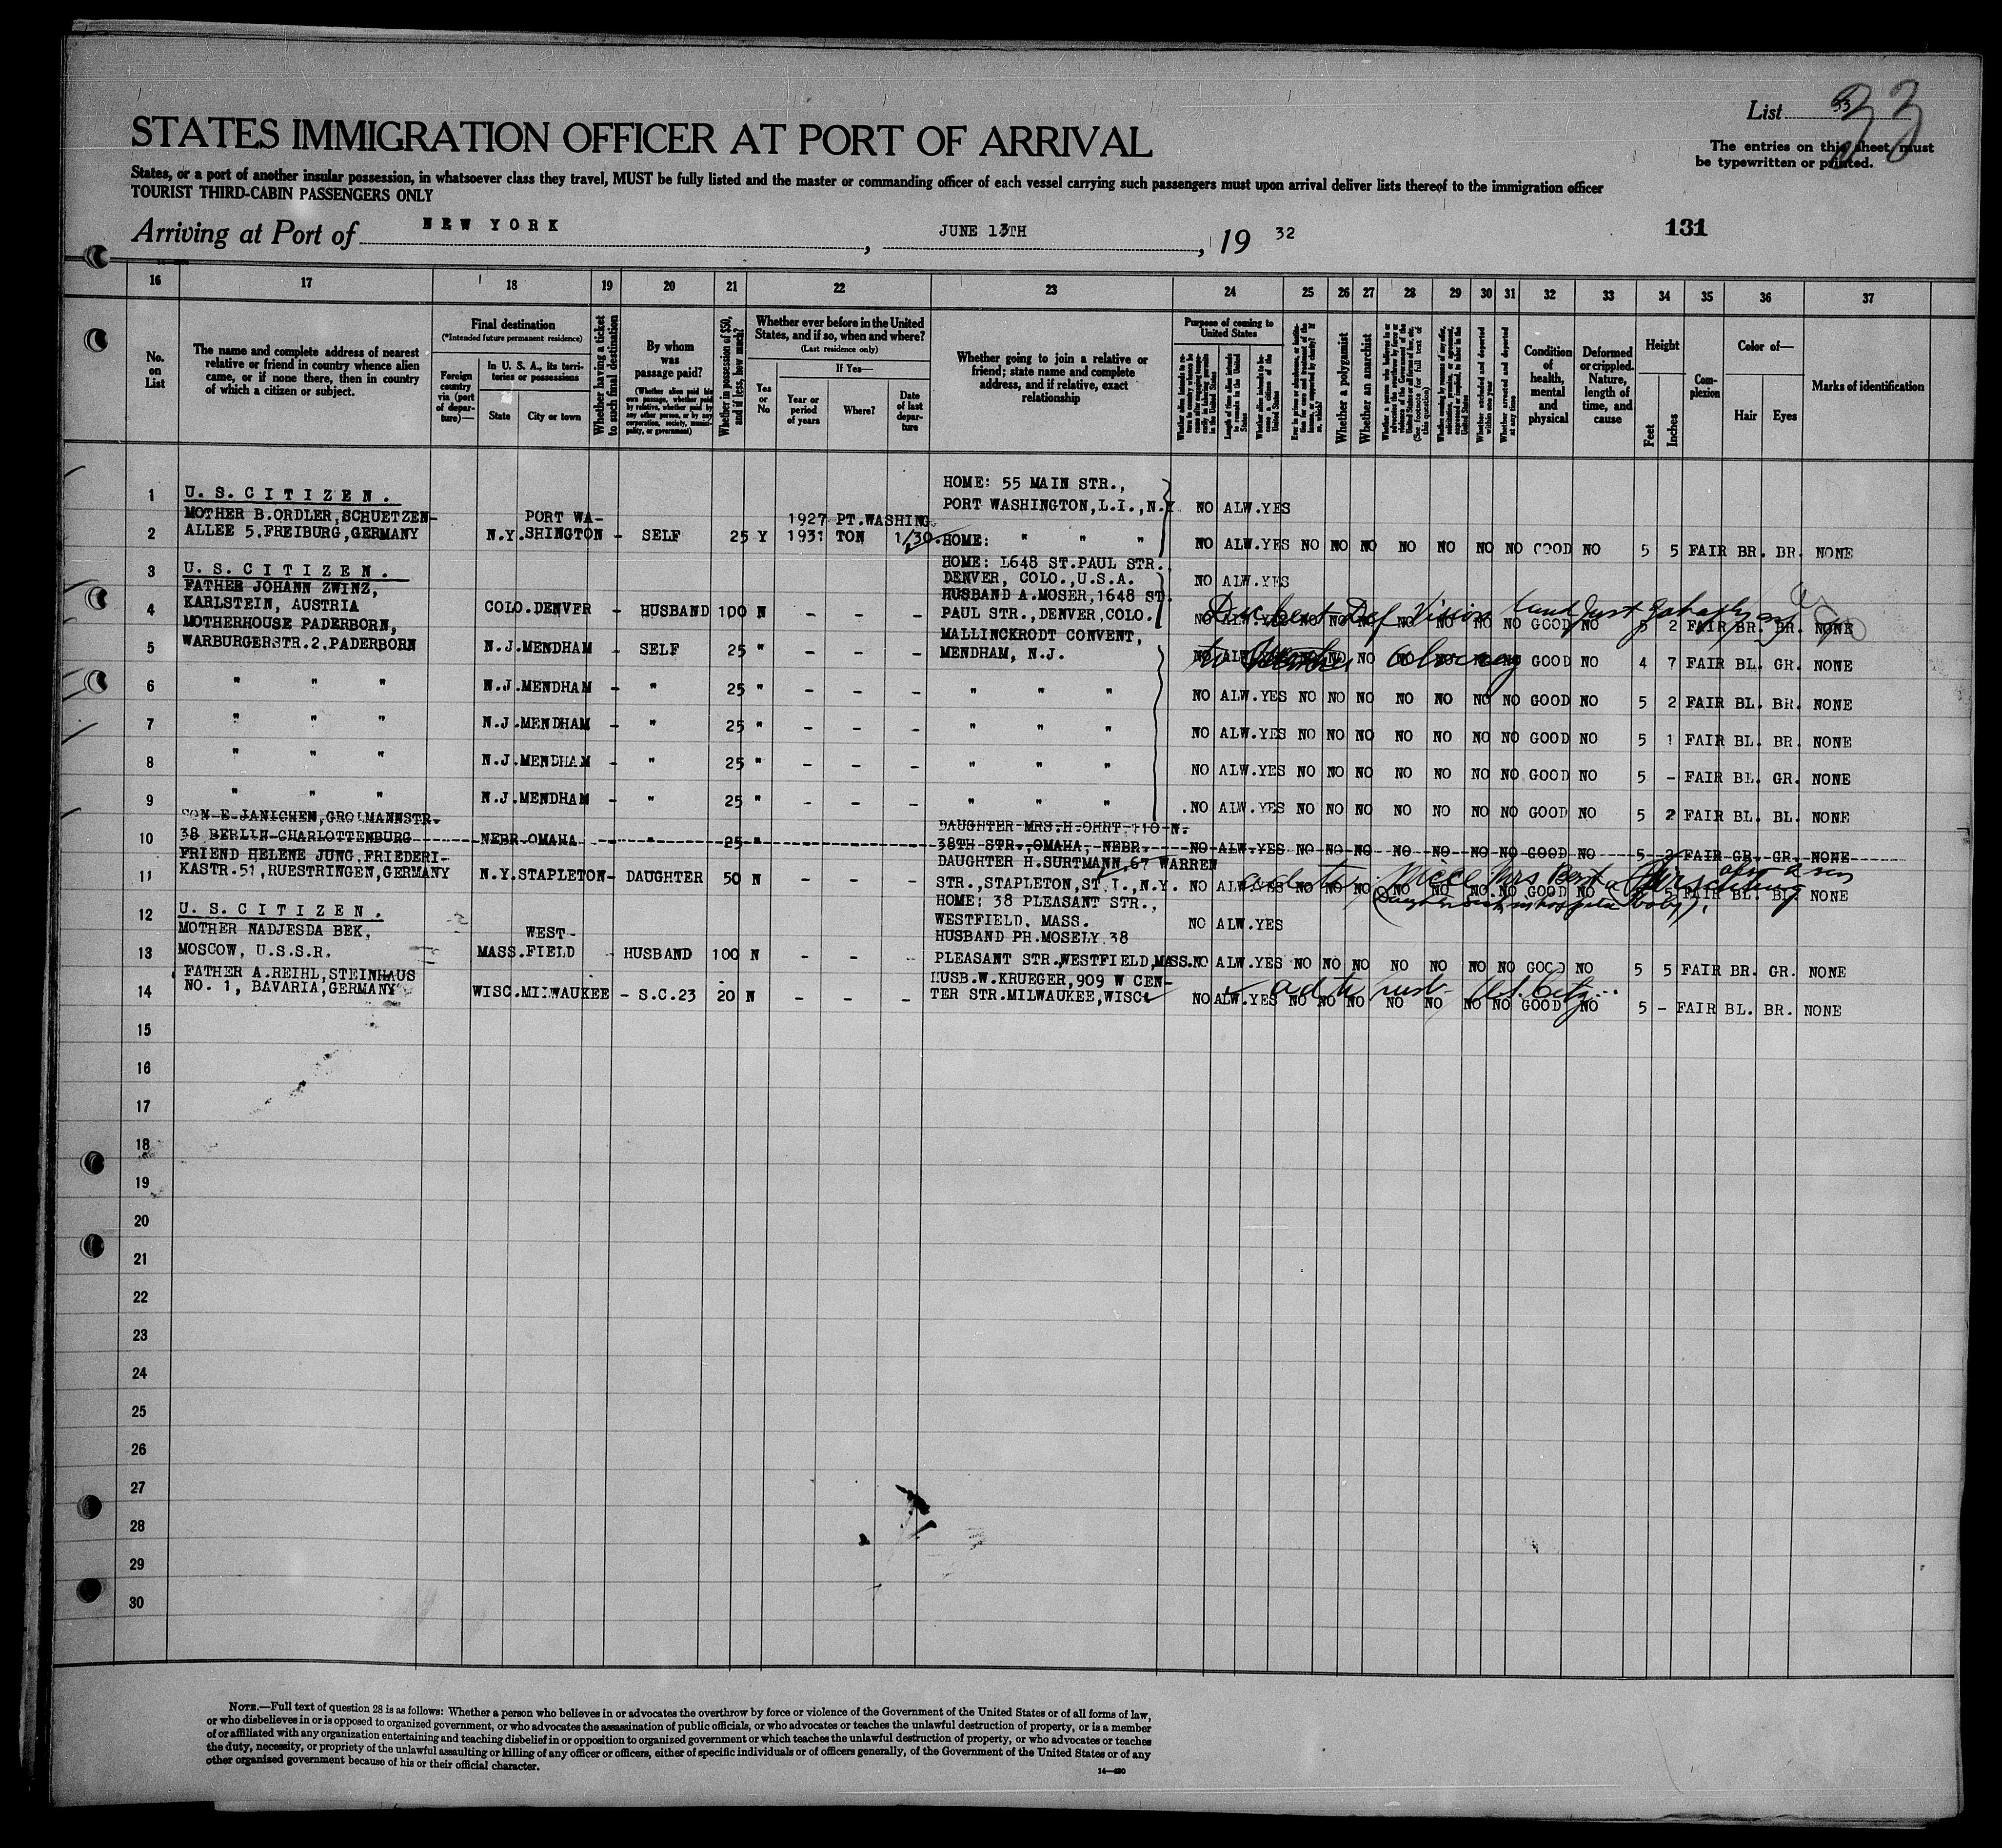 List 33
33
The entries on this sheet must
be typewritten or printed.
STATES IMMIGRATION OFFICER AT PORT OF ARRIVAL
States, or a port of another insular possession, in whatsoever class they travel, MUST be fully listed and the master or commanding officer of each vessel carrying such passengers must upon arrival deliver lists thereof to the immigration officer
TOURIST THIRD-CABIN PASSENGERS ONLY
Arriving at Port of NEW YORK, JUNE 13TH, 19 32
131
16 17 18 19 20 21 22 23 24 25 26 27 28 29 30 31 32 33 34 35 36 37
No. on List
The name and complete address of nearest relative or friend in country whence alien came, or if none there, then in country of which a citizen or subject.
Final destination
(*Intended future permanent residence)
Foreign country via (port of departure)—
In U. S. A., its territories or possessions
State
City or town
Whether having a ticket to such final destination
By whom was passage paid?
(Whether alien paid his own passage, whether paid by relative, whether paid by any other person, or by any corporation, society, municipality, or government)
Whether in possession of $50, and if less, how much?
Whether ever before in the United States, and if so, when and where?
(Last residence only)
Yes or No
If Yes—
Year or period of years
Where?
Date of last departure
Whether going to join a relative or friend; state name and complete address, and if relative, exact relationship
Purpose of coming to United States
Whether a polygamist
Whether an anarchist
Condition of health, mental and physical
Deformed or crippled. Nature, length of time, and cause
Height
Feet
Inches
Complexion
Color of—
Hair
Eyes
Marks of identification
HOME: 55 MAIN STR.,
1 U. S. CITIZEN. PORT WASHINGTON, L.I., N.Y. NO ALW. YES
MOTHER B.ORDLER, SCHUETZEN- PORT WA- 1927 PT.WASHING
2 ALLEE 5. FREIBURG, GERMANY N.Y. SHINGTON - SELF 25 Y 1931 TON 1/30. HOME: " " " NO ALW. YES NO NO NO NO NO NO NO GOOD NO 5 5 FAIR BR. BR. NONE
HOME: 1648 ST. PAUL STR.
3 U. S. CITIZEN. DENVER, COLO., U.S.A. NO ALW. YES
FATHER JOHANN ZWINZ, HUSBAND A. MOSER, 1648 ST.
4 KARLSTEIN, AUSTRIA COLO. DENVER - HUSBAND 100 N - - - PAUL STR., DENVER, COLO. NO ALW. YES NO NO NO NO NO NO NO GOOD NO 5 2 FAIR BR. BR. NONE
MOTHERHOUSE PADERBORN, MALLINCKRODT CONVENT,
5 WARBURGERSTR. 2, PADERBORN N.J. MENDHAM - SELF 25 " - - - MENDHAM, N.J. NO ALW. YES NO NO NO NO NO NO NO GOOD NO 4 7 FAIR BL. GR. NONE
6 " " " N.J. MENDHAM - " 25 " - - - " " " NO ALW. YES NO NO NO NO NO NO NO GOOD NO 5 2 FAIR BL. BR. NONE
7 " " " N.J. MENDHAM - " 25 " - - - " " " NO ALW. YES NO NO NO NO NO NO NO GOOD NO 5 1 FAIR BL. BR. NONE
8 " " " N.J. MENDHAM - " 25 " - - - " " " NO ALW. YES NO NO NO NO NO NO NO GOOD NO 5 - FAIR BL. GR. NONE
9 " " " N.J. MENDHAM - " 25 " - - - " " " NO ALW. YES NO NO NO NO NO NO NO GOOD NO 5 2 FAIR BL. BL. NONE
SON E JANICHEN, GROLMANNSTR. DAUGHTER MRS. H. OHRT 110 N.
10 38 BERLIN-CHARLOTTENBURG NEBR. OMAHA - " 25 " 38TH STR., OMAHA, NEBR. NO ALW. YES NO NO NO NO NO NO NO GOOD NO 5 2 FAIR GR. GR. NONE
FRIEND HELENE JUNG, FRIEDERI- DAUGHTER H. SURTMANN, 67 WARREN
11 KASTR. 51, RUESTRINGEN, GERMANY N.Y. STAPLETON - DAUGHTER 50 N - - - STR., STAPLETON, ST. I., N.Y. NO ALW. YES NO NO NO NO NO NO NO GOOD NO 5 5 FAIR BL. BL. NONE
HOME: 38 PLEASANT STR.,
12 U. S. CITIZEN. WESTFIELD, MASS. NO ALW. YES
MOTHER NADJESDA BEK, WEST- HUSBAND PH. MOSELY, 38
13 MOSCOW, U.S.S.R. MASS. FIELD - HUSBAND 100 N - - PLEASANT STR. WESTFIELD, MASS. NO ALW. YES NO NO NO NO NO NO NO GOOD NO 5 5 FAIR BR. GR. NONE
FATHER A. REIHL, STEINHAUS HUSB. W. KRUEGER, 909 W CEN-
14 NO. 1, BAVARIA, GERMANY WISC. MILWAUKEE - S.C. 23 20 N - - - TER STR. MILWAUKEE, WISC. NO ALW. YES NO NO NO NO NO NO NO GOOD NO 5 - FAIR BL. BR. NONE
15
16
17
18
19
20
21
22
23
24
25
26
27
28
29
30
NOTE.—Full text of question 28 is as follows: Whether a person who believes in or advocates the overthrow by force or violence of the Government of the United States or of all forms of law,
or who disbelieves in or is opposed to organized government, or who advocates the assassination of public officials, or who advocates or teaches the unlawful destruction of property, or is a member
of or affiliated with any organization entertaining and teaching disbelief in or opposition to organized government or which teaches the unlawful destruction of property, or who advocates or teaches
the duty, necessity, or propriety of the unlawful assaulting or killing of any officer or officers, either of specific individuals or of officers generally, of the Government of the United States or of any
other organized government because of his or their official character.
14—480